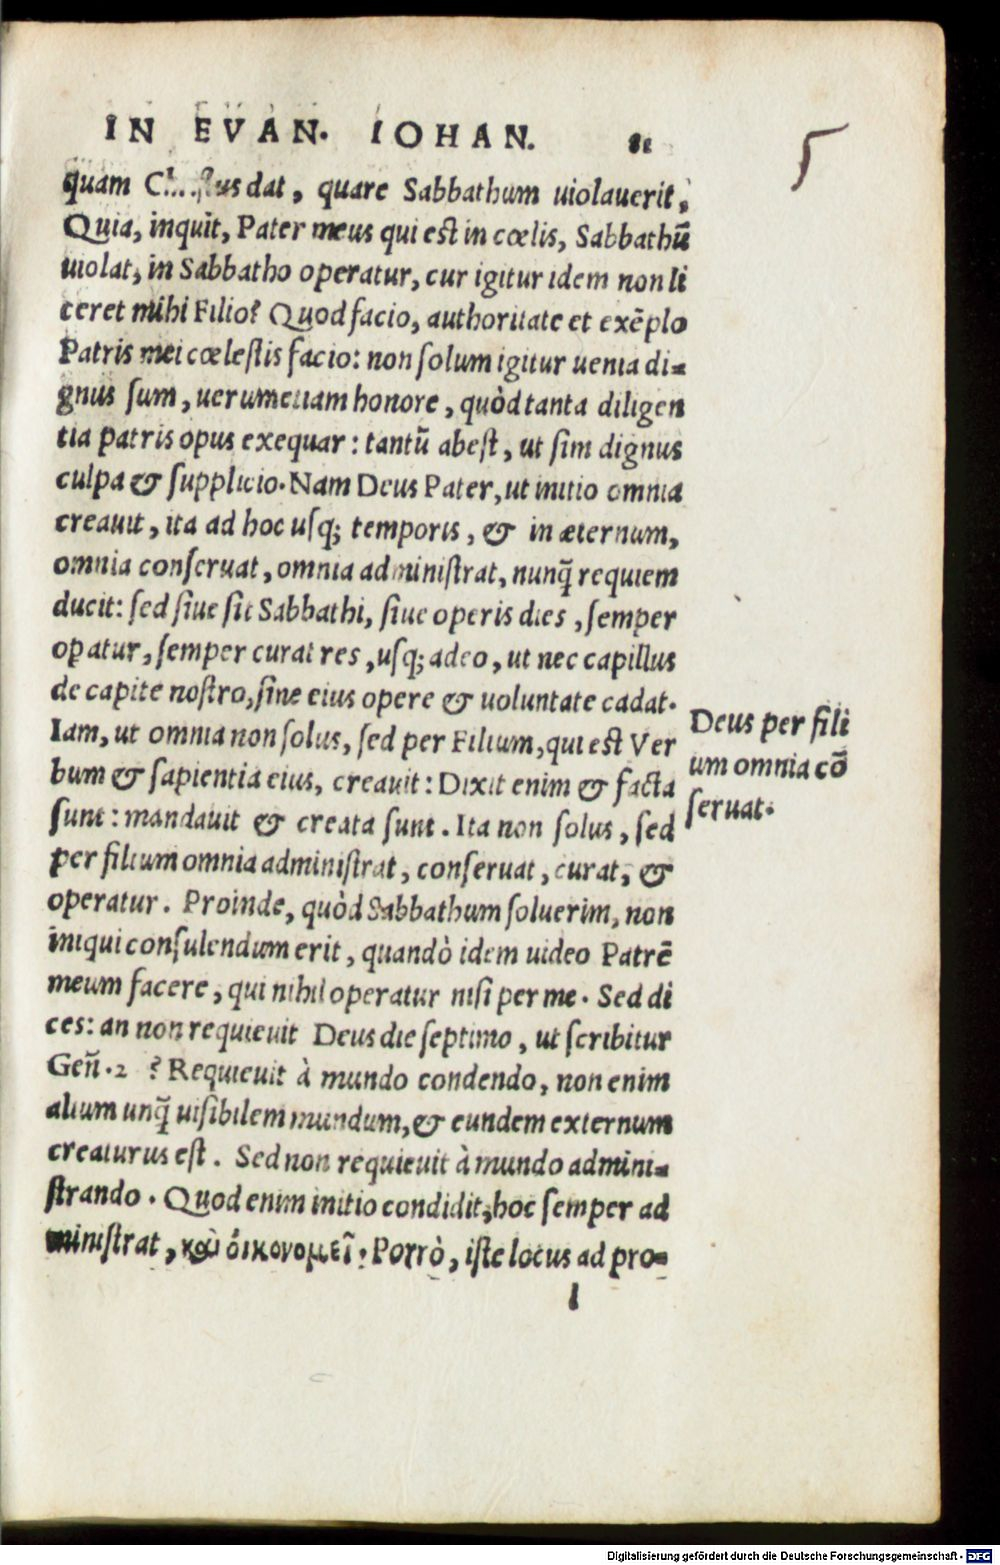 IN EVAN. IOHAN. 81
5
quam Christus dat, quare Sabbathum uiolauerit,
Quia, inquit, Pater meus qui est in cœlis, Sabbathũ
uiolat, in Sabbatho operatur, cur igitur idem non li
ceret mihi Filio? Quod facio, authoritate et exẽplo
Patris mei cœlestis facio: non solum igitur uenia di-
gnus sum, uerumetiam honore, quòd tanta diligen
tia patris opus exequar: tantũ abest, ut sim dignus
culpa & supplicio. Nam Deus Pater, ut initio omnia
creauit, ita ad hoc usq; temporis, & in æternum,
omnia conseruat, omnia administrat, nunq̃ requiem
ducit: sed siue sit Sabbathi, siue operis dies, semper
opatur, semper curat res, usq; adeo, ut nec capillus
de capite nostro, sine eius opere & uoluntate cadat.
Iam, ut omnia non solus, sed per Filium, qui est Ver
bum & sapientia eius, creauit: Dixit enim & facta
sunt: mandauit & creata sunt. Ita non solus, sed
per filium omnia administrat, conseruat, curat, &
operatur. Proinde, quòd Sabbathum soluerim, non
iniqui consulendum erit, quandò idem uideo Patrẽ
meum facere, qui nihil operatur nisi per me. Sed di
ces: an non requieuit Deus die septimo, ut scribitur
Geñ. 2 ? Requieuit à mundo condendo, non enim
alium unq̃ uisibilem mundum, & eundem externum
creaturus est. Sed non requieuit à mundo admini-
strando. Quod enim initio condidit, hoc semper ad
ministrat, καὶ ὀικονομεῖ. Porrò, iste locus ad pro-
l
Deus per fili
um omnia cõ
seruat.
Digitalisierung gefördert durch die Deutsche Forschungsgemeinschaft - DFG